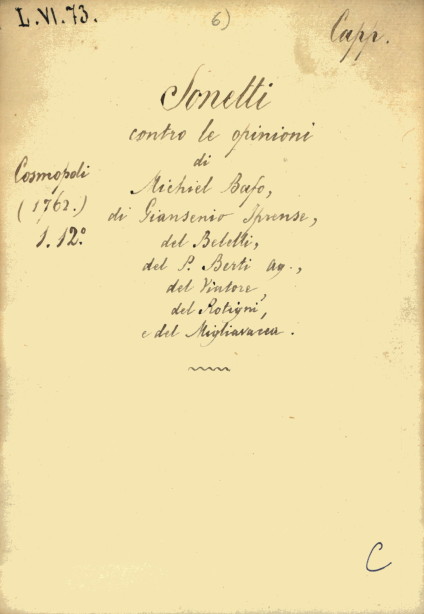 L.VI.73.
6)
Capp.
Sonetti
contro le opinioni
di
Cosmopoli
Michiel Bafo,
(1762.)
di Giansenio Iprense,
1. 12º
del Beletti,
del P. Berti Ag.,
del Viatore,
del Rotigni,
e del Migliavacca.
C